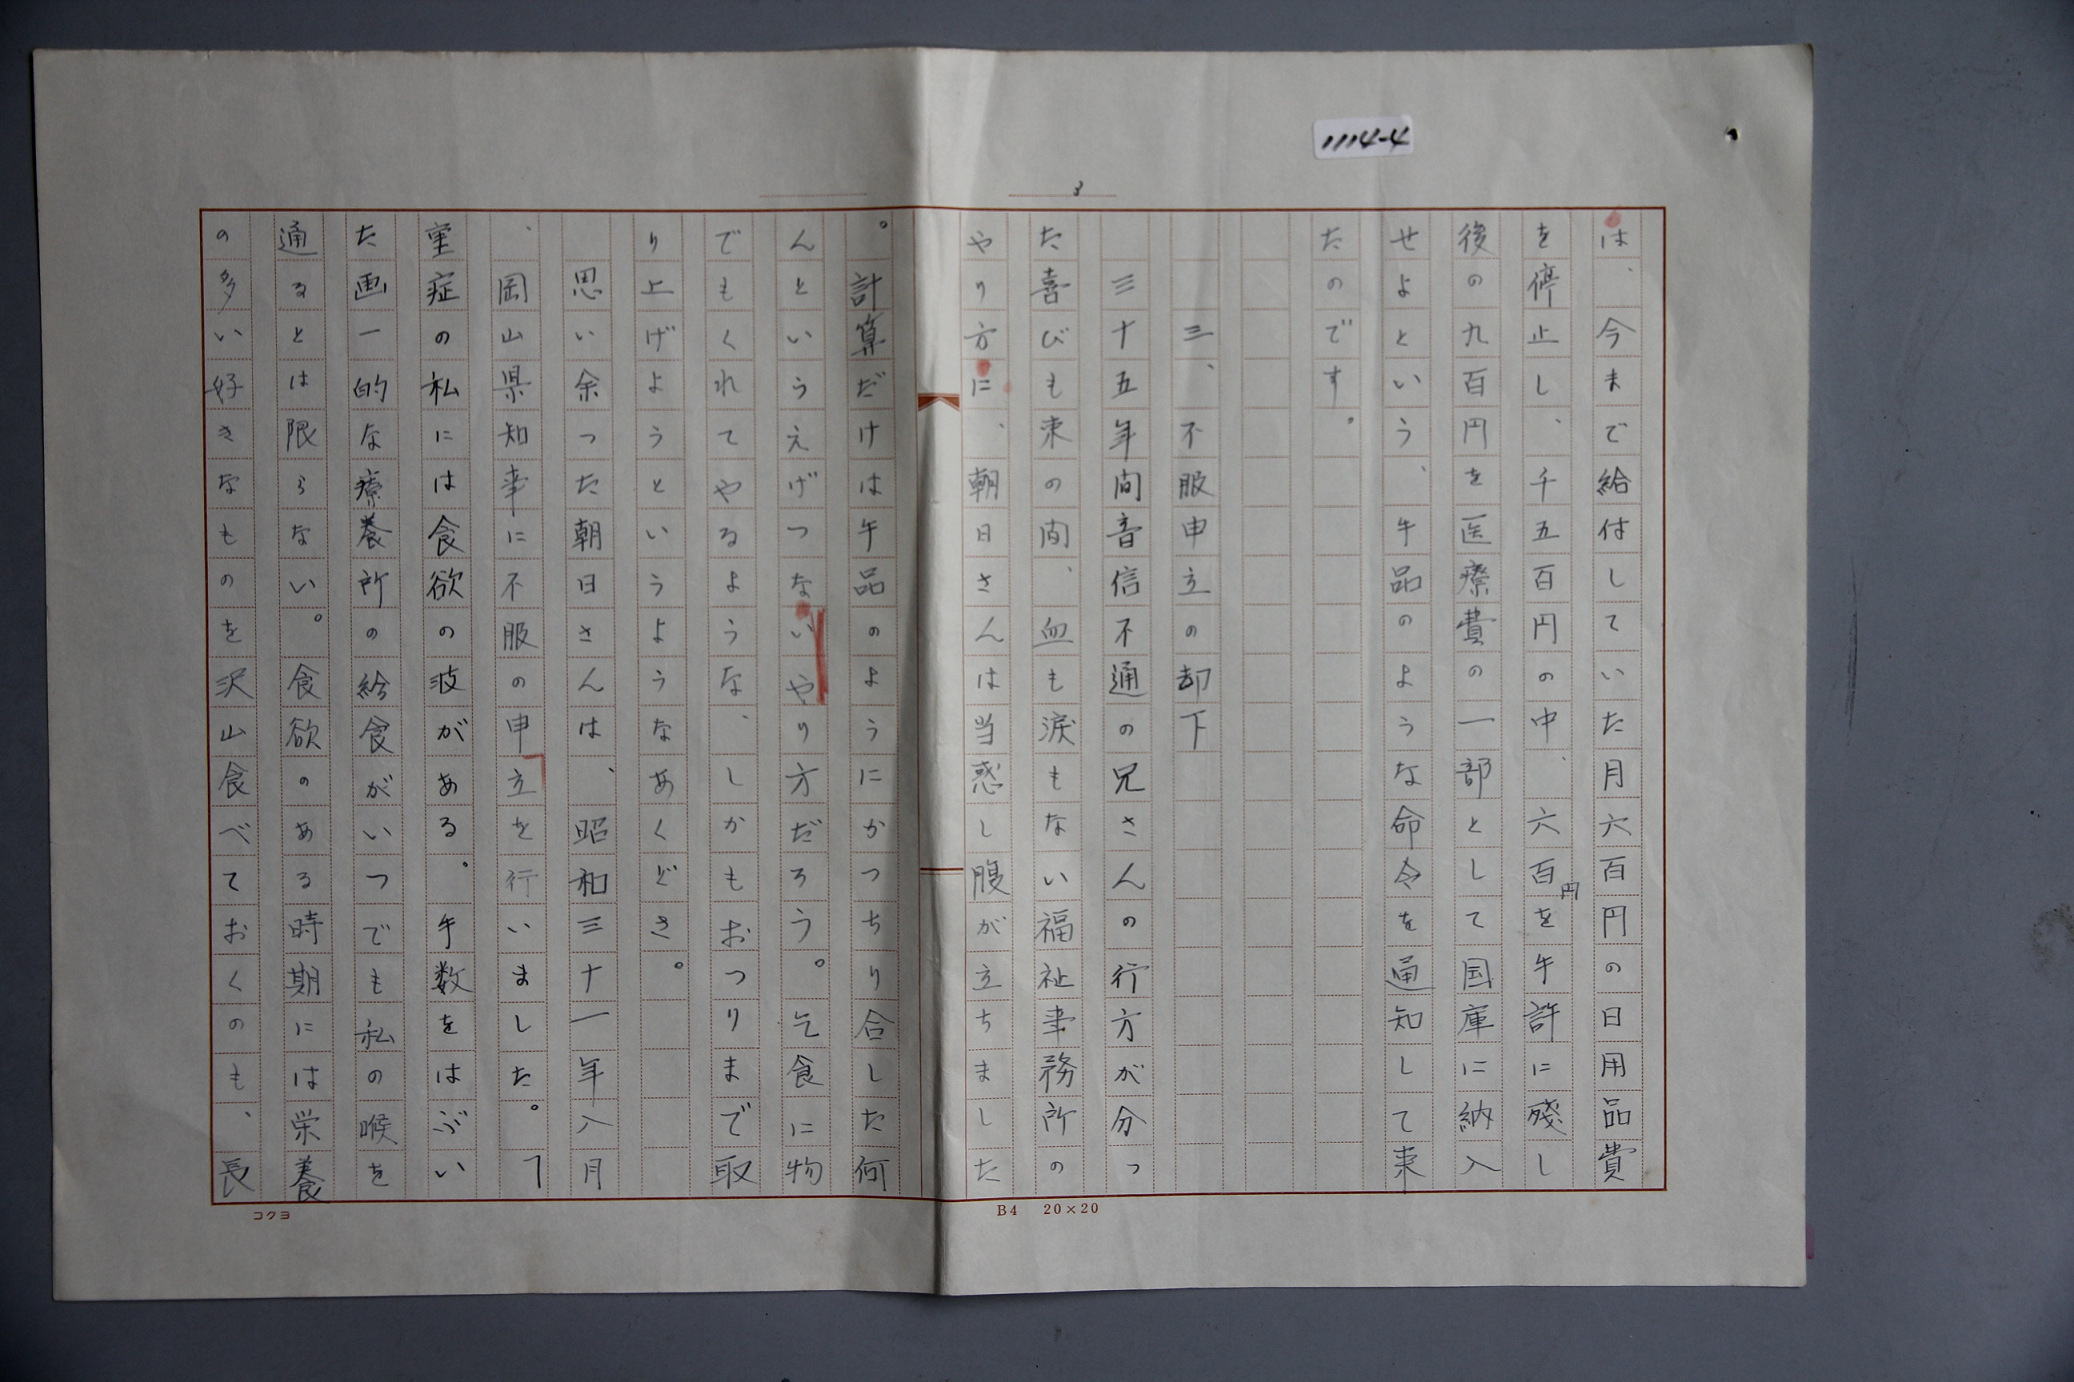 1114-4
3
は、今まで給付していた月六百円の日用品費
を停止し、千五百円の中、六百円を手許に残し
後の九百円を医療費の一部として国庫に納入
せよという、手品のような命令を通知して来
たのです。
三、不服申立の却下
三十五年間音信不通の兄さんの行方が分っ
た喜びも束の間、血も涙もない福祉事務所の
やり方に、朝日さんは当惑し腹が立ちました
。計算だけは手品のようにかっちり合した何
んといううえげつないやり方だろう。乞食に物
でもくれてやるような、しかもおつりまで取
り上げようというようなあくどさ。
思い余った朝日さんは、昭和三十一年八月
、岡山県知事に不服の申立を行いました。「
重症の私には食欲の波がある。手数をはぶい
た画一的な療養所の給食がいつでも私の喉を
通るとは限らない。食欲のある時期には栄養
の多い好きなものを沢山食べておくのも、長
コクヨ
B4 20×20